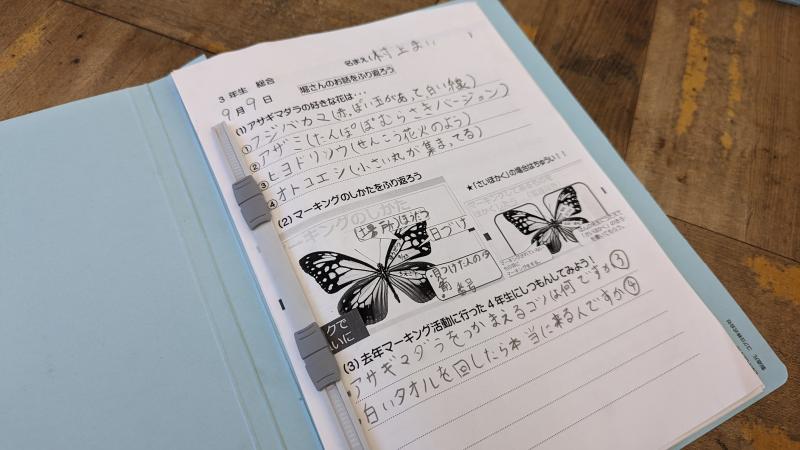 名まえ(村上まい )
3年生 総合
堀さんのお話をふり返ろう
9月9日
(1)アサギマダラの好きな花は・・・
①フジバカマ(赤っぽい玉があって、白い線)
②アザミ(たんぽぽむらさきバージョン)
③ヒヨドリソウ(せんこう花火のよう)
④オトコエシ(小さい丸が集まってる)
(2)マーキングのしかたをふり返ろう
★「さいほかく」の場合はちゅうい!!
ーキングのしかた
(場所)ほだつ
日づけ
見つけた人の名前
番号
クで
いに
(3)去年マーキング活動に行った4年生にしつもんしてみよう!
・アサギマダラをつかまえるコツは何ですか③
・白いタオルを回したら本当に来るんですか④